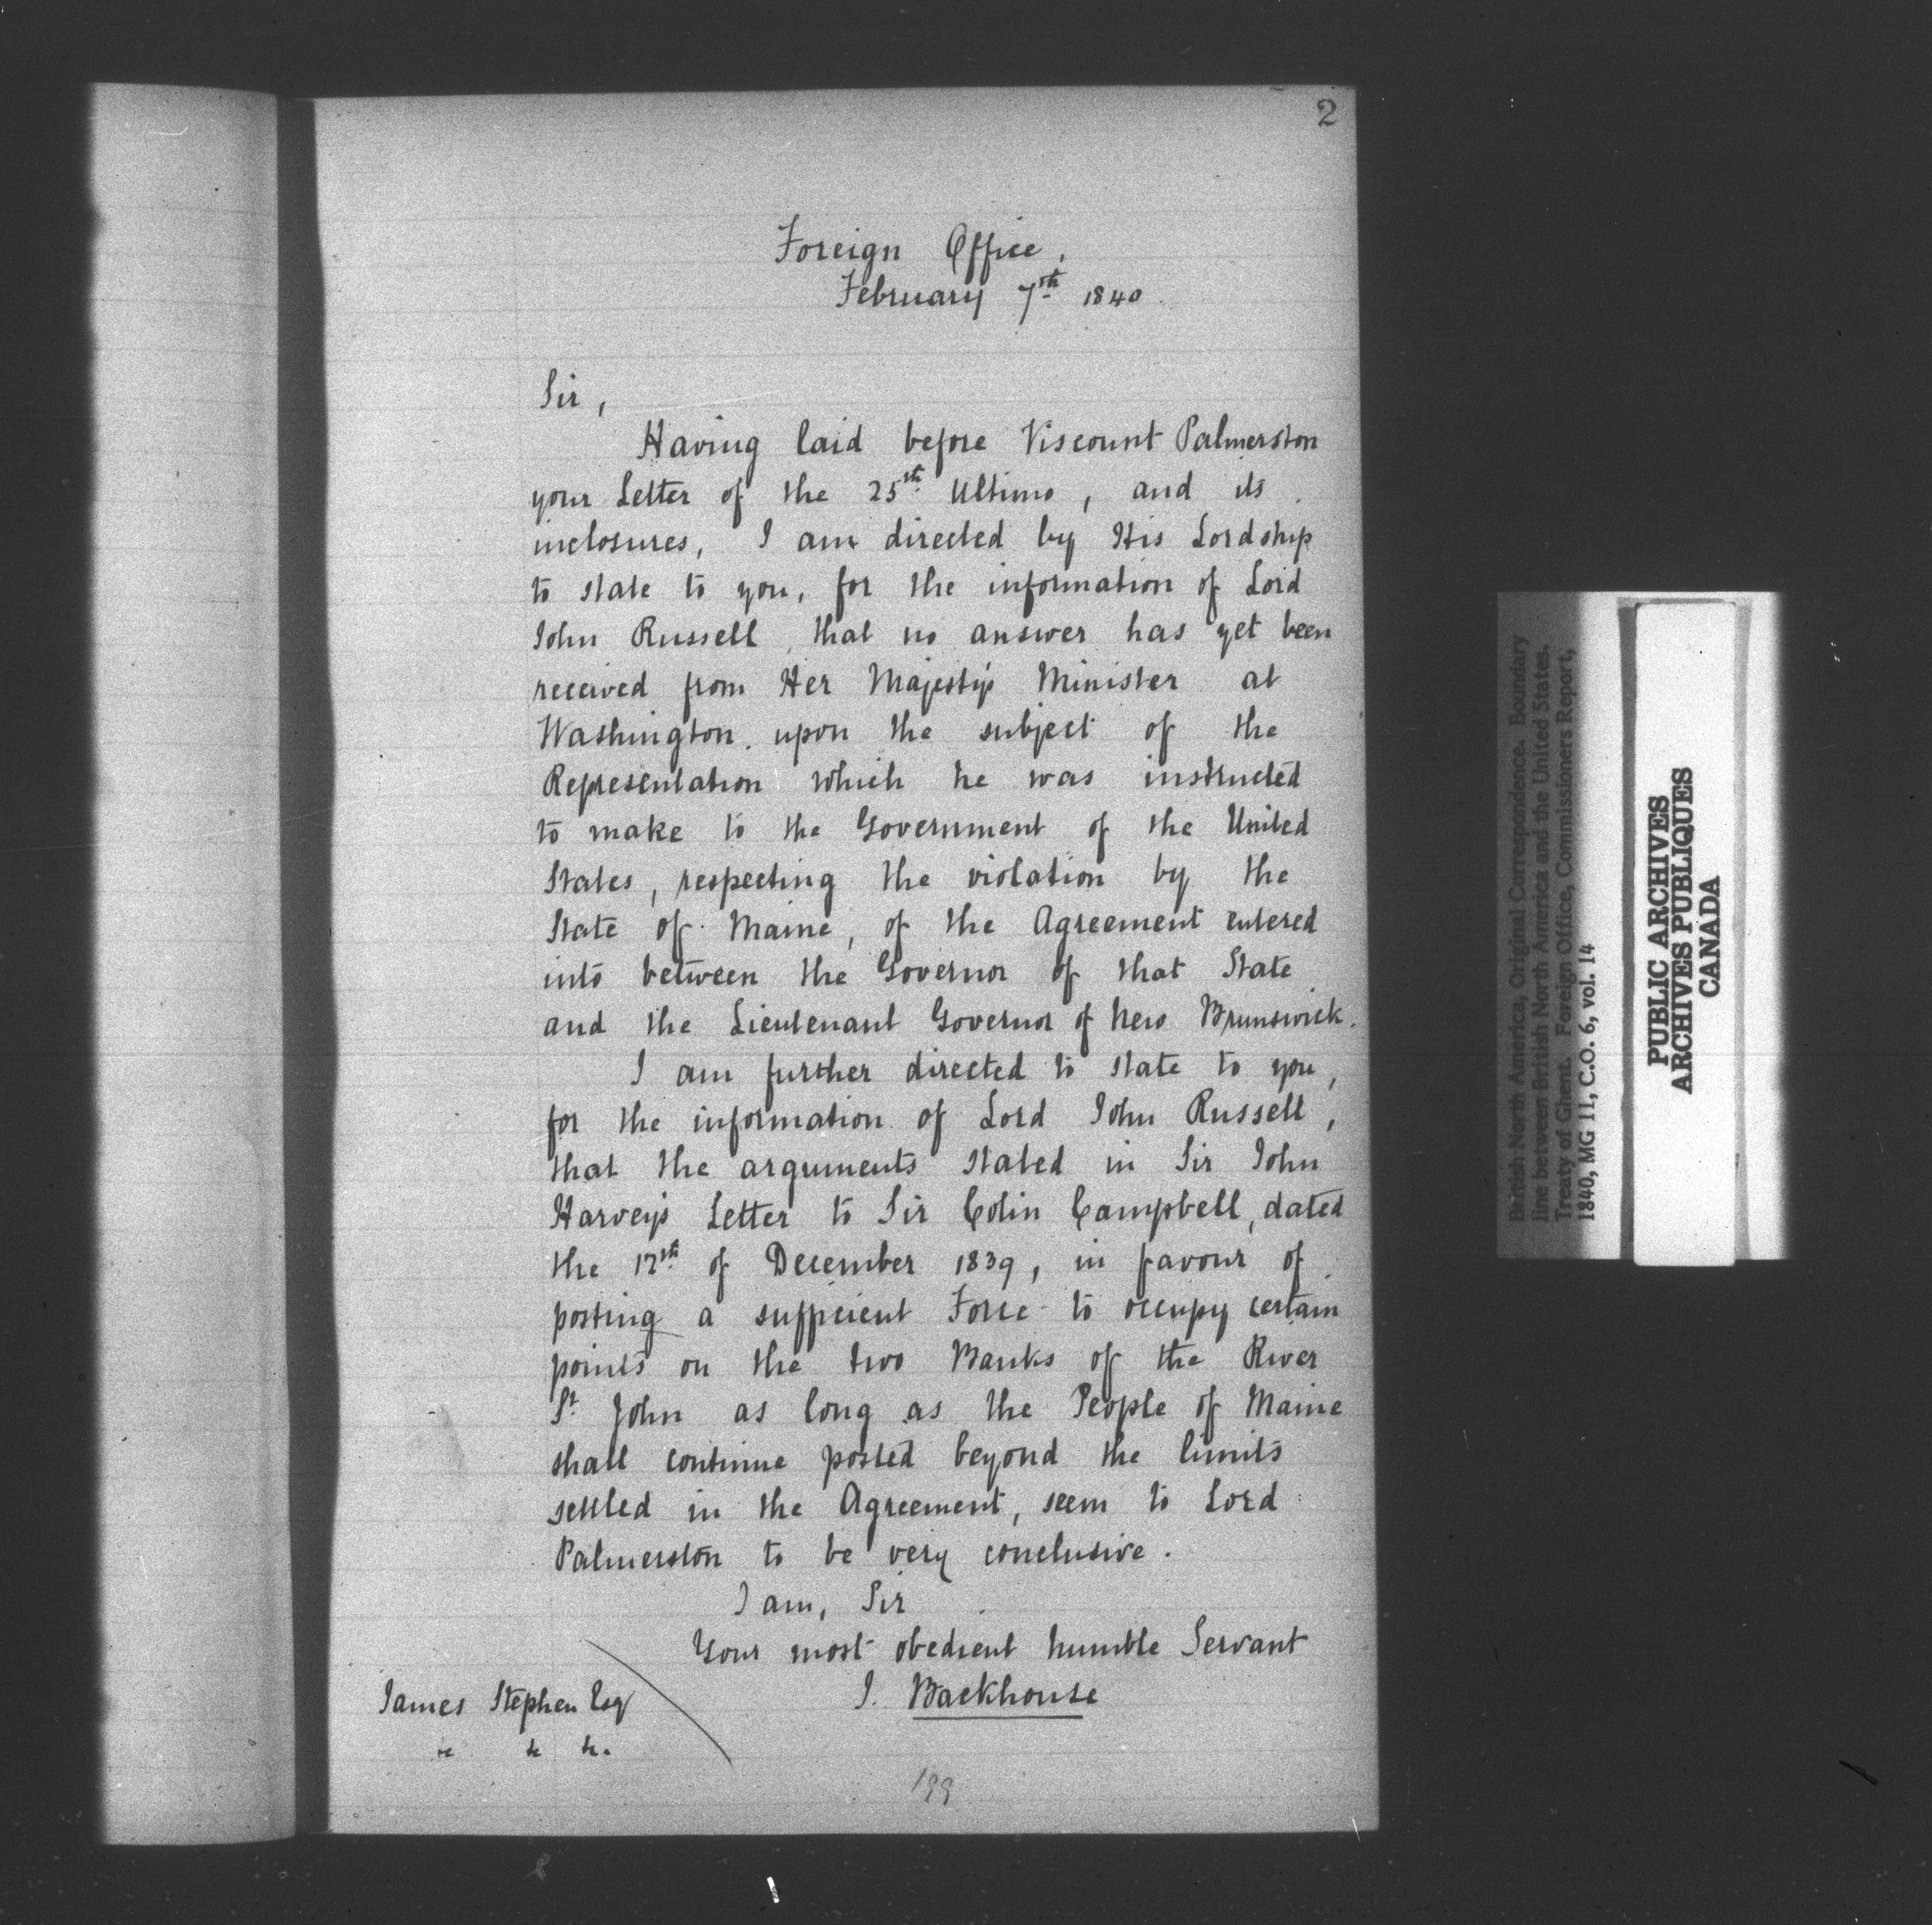 2
Foreign Office,
February 7th 1840
Sir,
Having laid before Viscount Palmerston
your Letter of the 25th Ultimo, and its
inclosures, I am directed by His Lordship
to state to you, for the information of Lord
John Russell, that no answer has yet been
received from Her Majesty's Minister at
Washington. upon the subject of the
Representation which he was instructed
to make to the Government of the United
States, respecting the violation by the
State of Maine, of the Agreement entered
into between the Governor of that State
and the Lieutenant Governor of New Brunswick.
I am further directed to state to you,
for the information of Lord John Russell,
that the arguments stated in Sir John
Harvey's Letter to Sir Colin Campbell, dated
the 17th of December 1839, in favour of
posting a sufficient Force to occupy certain
points on the two Banks of the River
St John as long as the People of Maine
shall continue posted beyond the limits
settled in the Agreement, seem to Lord
Palmerston to be very conclusive.
I am, Sir
Your most obedient humble Servant
J. Backhouse
James Stephen Esq
&c &c &c.
199
British North America, Original Correspondence. Boundary
line between British North America and the United States.
Treaty of Ghent. Foreign Office, Commissioners Report,
1840, MG 11, C.O. 6, vol. 14
PUBLIC ARCHIVES
ARCHIVES PUBLIQUES
CANADA